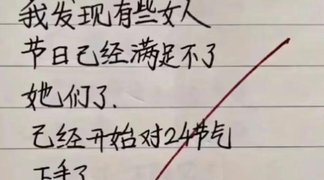 我发现有些女人
节日己经满足不了
她们了.
己经开始对24节气
下手了